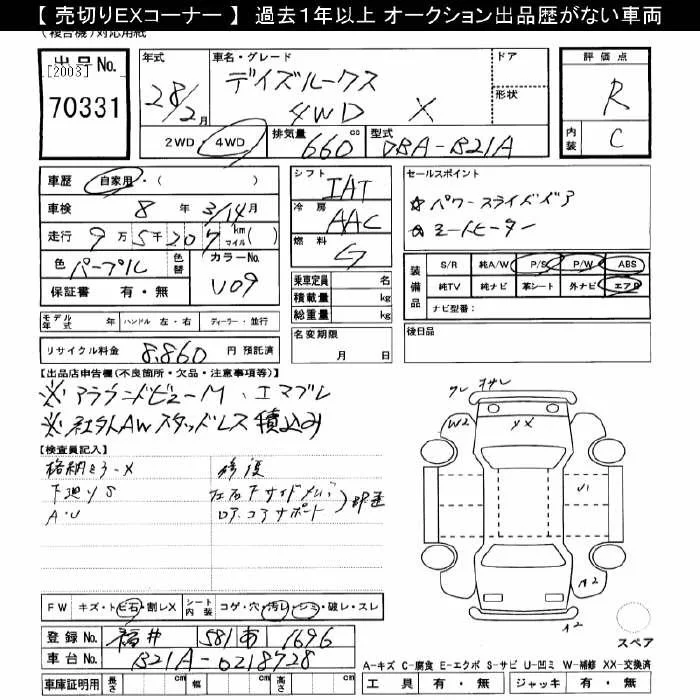 【 売切りEXコーナー 】 過去1年以上 オークション出品歴がない車両
(複合機)対応用紙
出品No.
[2003]
70331
年式
28/2月
車名・グレード
デイズルークス
4WD X
ドア
形状
評価点
R
内装
C
2WD・4WD
排気量
660 cc
型式
DBA-B21A
車歴
自家用・( )
車検
8 年 3/14月
走行
9万5千207 km マイル( )
色
パープル
色替
カラーNo.
V09
保証書 有・無
シフト
IAT
冷房
AAC
燃料
G
乗車定員 名
積載量 kg
総重量 kg
セールスポイント
☆パワースライドドア
☆シートヒーター
装備品
S/R 純A/W P/S P/W ABS
純TV 純ナビ 革シート 外ナビ エアB
ナビ型番:
モデル年式 年 ハンドル 左・右 ディーラー・並行
名変期限
月 日
後日品
リサイクル料金 8,860 円 預託済
【出品店申告欄(不良箇所・欠品・注意事項等)】
※アラウンドビューM、エマブレ
※社外AWスタッドレス積込み
【検査員記入】
格納ミラーX
下廻りS
A・U
修復
左右下サイドメンバ
ロア・コアサポート
W2
XX
U1
A2
A2
FW キズ・トビ石・割レX
シート内装 コゲ・穴・汚レ・シミ・破レ・スレ
スペア
登録No. 福井 581 あ 1696
車台No. B21A-0218728
A-キズ C-腐食 E-エクボ S-サビ U-凹ミ W-補修 XX-交換済
車庫証明用 長さ cm 幅 cm 高さ cm
工具 有・無 ジャッキ 有・無